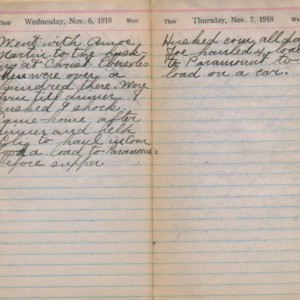 Ther. Wednesday, Nov. 6, 1918 Wea.
Went with Amos
Martin to the husk-
ing at Christ Ebersoles
there were over a
hundred there. Were
there till dinner. I
husked 1 shock,
Came home after
dinner and help
to haul in corn
a load to Paramount
before supper.
Ther. Thursday, Nov. 7, 1918 Wea.
Husked corn all day
Joe hauled 4 load
to Paramount to
load on a car.